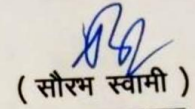 ( सौरभ स्वामी )